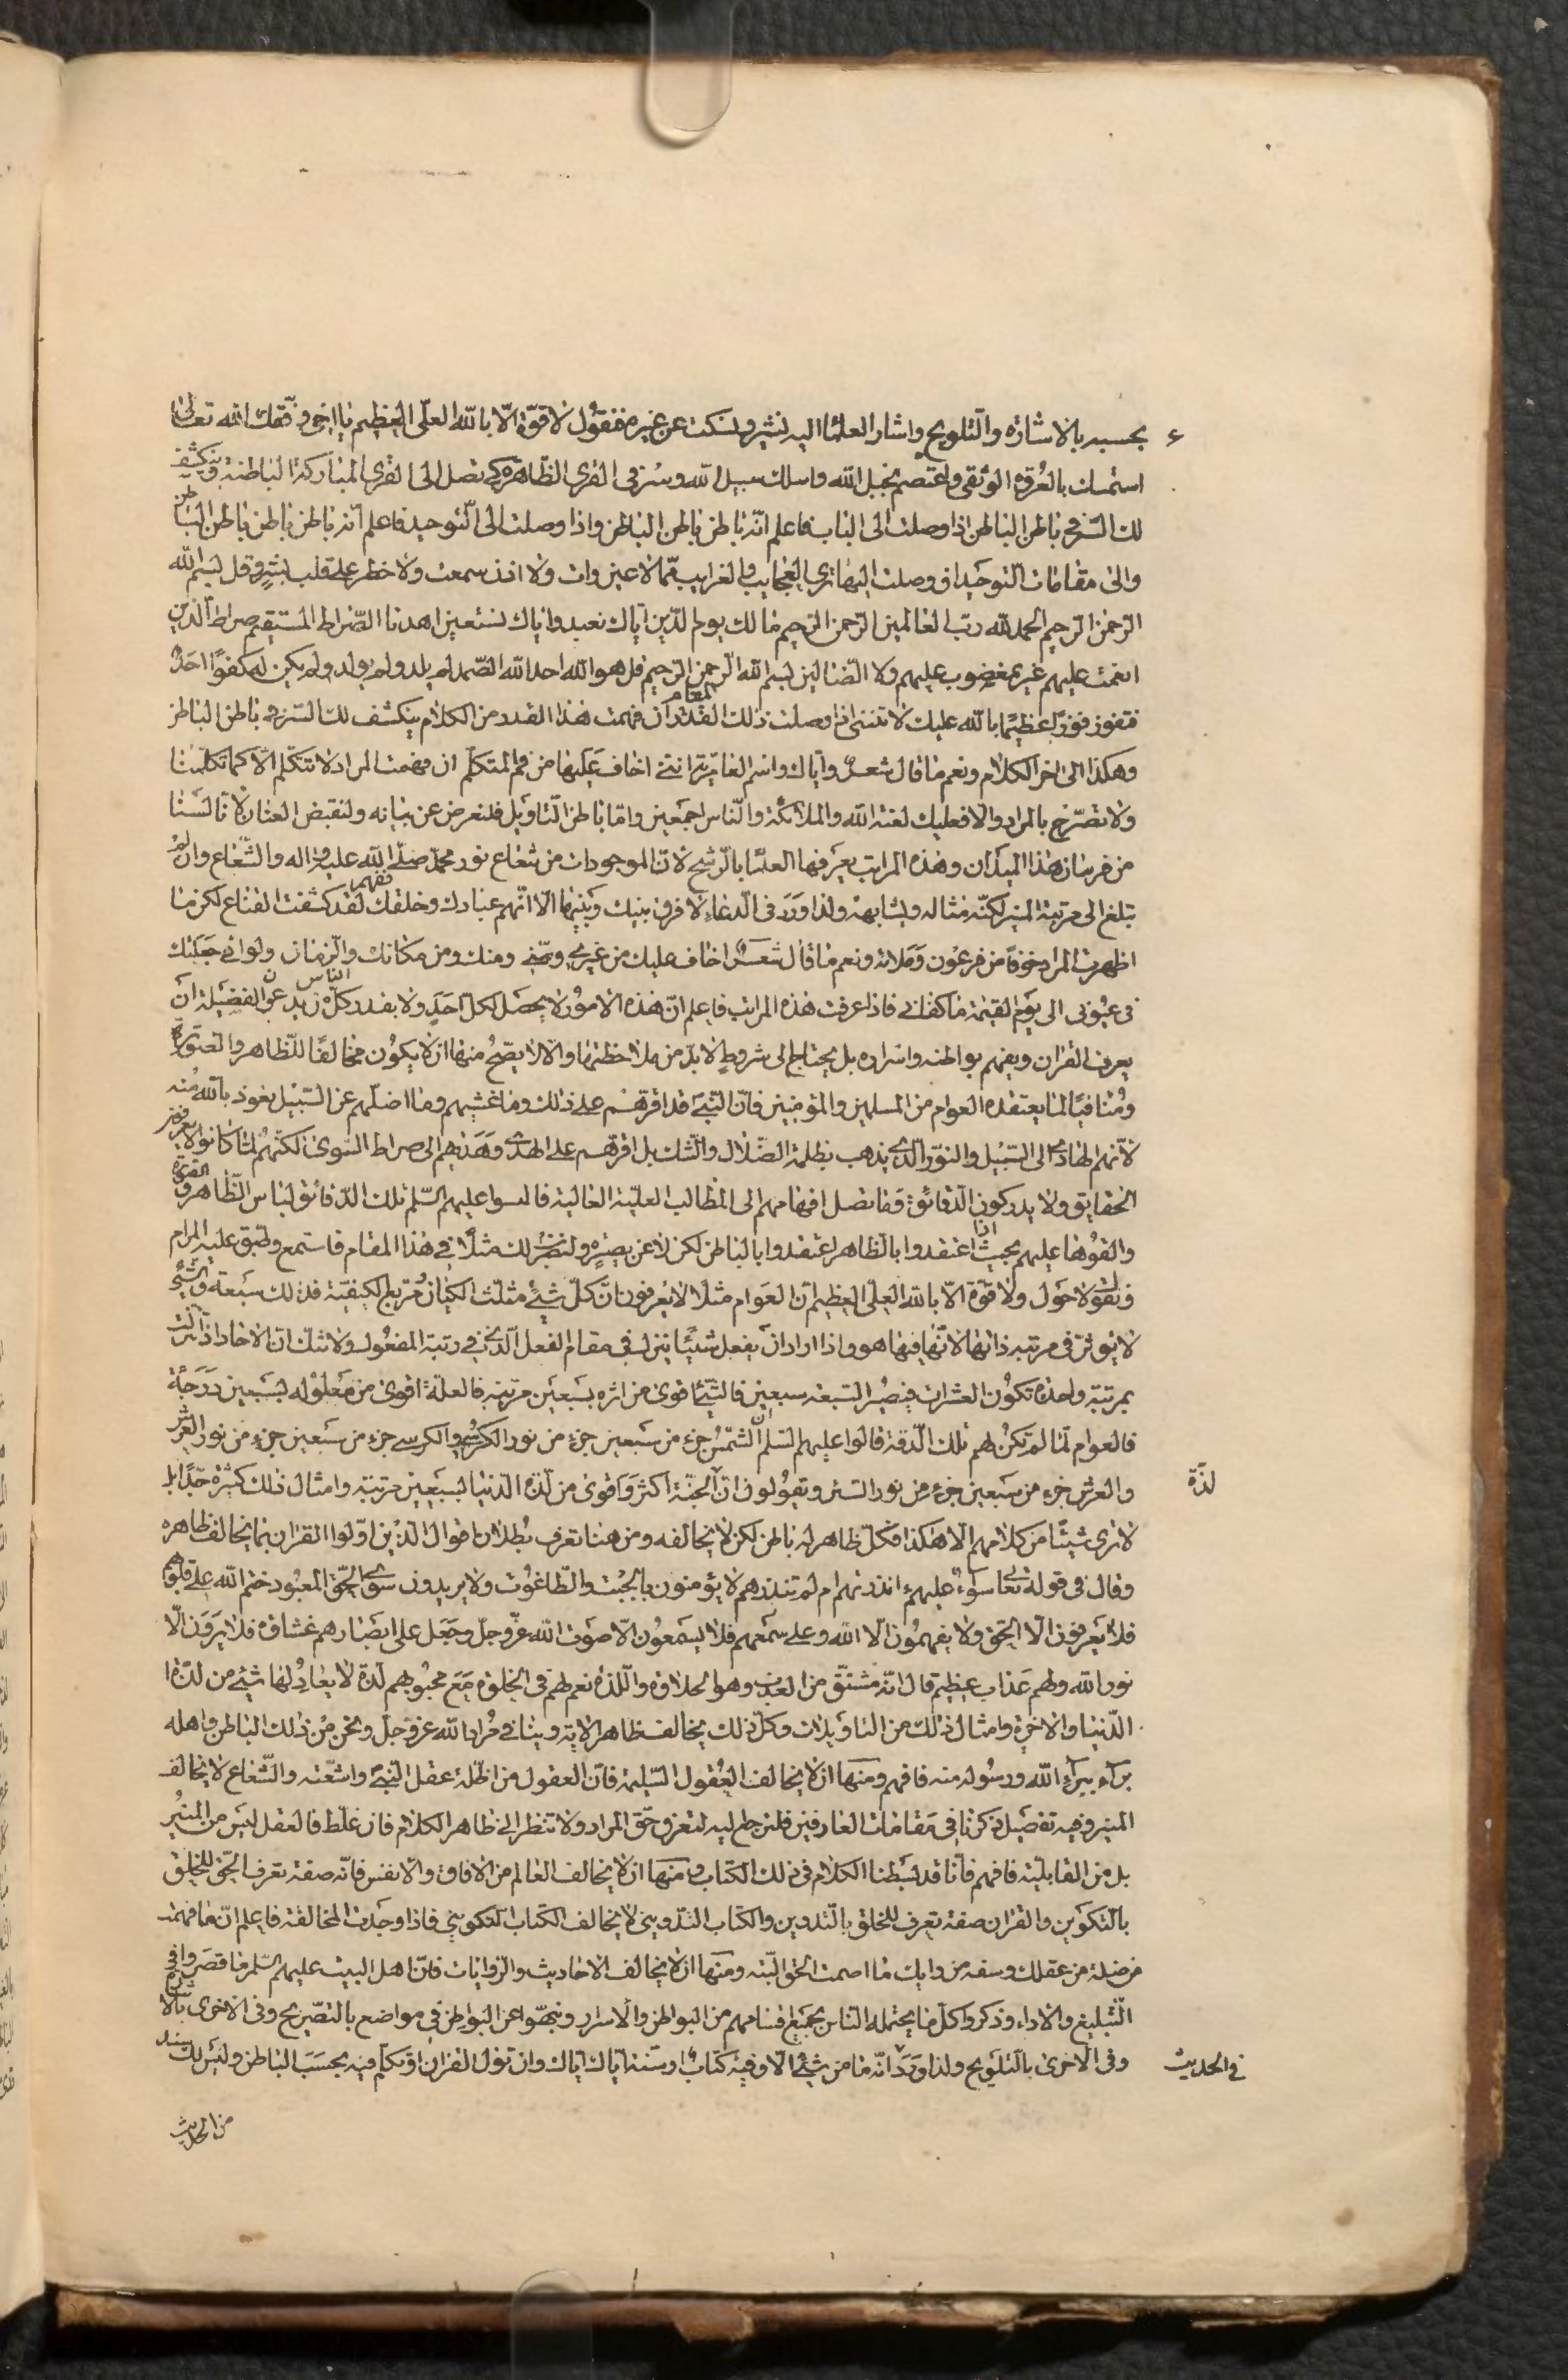 بحسبه بالاشارة والتلويح واشار العلماء اليه نشير ونسكت عن غيره فنقول لا قوة الا بالله العلي العظيم يا اخي وفقك الله تعالى
استمسك بالعروة الوثقى واعتصم بحبل الله واسلك سبيل الله وسر في القرى الظاهرة كي تصل الى القرى المباركة الباطنة وينكشف
لك السر في باطن الباطن اذا وصلت الى الباب فاعلم انه باطن باطن الباطن واذا وصلت الى التوحيد فاعلم انه باطن باطن باطن الباطن
والى مقامات التوحيد ان وصلت اليها ترى العجايب والغرايب مما لا عين رات ولا اذن سمعت ولا خطر على قلب بشر وقل بسم الله
الرحمن الرحيم الحمد لله رب العالمين الرحمن الرحيم مالك يوم الدين اياك نعبد واياك نستعين اهدنا الصراط المستقيم صراط الذين
انعمت عليهم غير المغضوب عليهم ولا الضالين بسم الله الرحمن الرحيم قل هو الله احد الله الصمد لم يلد ولم يولد ولم يكن له كفوا احد
فتفوز فوزا عظيما بالله عليك لا تنسني اذا وصلت ذلك المقام ان فهمت هذا القدر من الكلام ينكشف لك السر في باطن الباطن
وهكذا الى اخر الكلام ونعم ما قال شعر واياك واسم العامرية انني اخاف عليها من فم المتكلم ان فهمت المراد لا تتكلم الا كما تكلمنا
ولا تصرح بالمراد والا فعليك لعنة الله والملائكة والناس اجمعين واما باطن التاويل فلنعرض عن بيانه ولنقبض العنان لانا لسنا
من فرسان هذا الميدان وهذه المراتب يعرفها العلماء بالرشح لان الموجودات من شعاع نور محمد صلى الله عليه واله والشعاع وان لم
تبلغ الى مرتبة المنير لكنه مثاله ويشابهه ولذا ورد في الدعاء لا فرق بينك وبينها الا انهم عبادك وخلقك فافهم لقد كشفت القناع لكن ما
اظهرت المراد خوفا من فرعون وملائه ونعم ما قال شعر اخاف عليك من غيري ومني ومنك ومن مكانك والزمان ولو اني جعلتك
في عيوني الى يوم القيمة ما كفاني فاذا عرفت هذه المراتب فاعلم ان هذه الامور لا يحصل لكل احد ولا يقدر كل الناس ان
يعرف القران ويفهم بواطنه واسراره بل يحتاج الى شروط لا بد من ملاحظتها والا لا يصح منها ان لا يكون مخالفا للظاهر والصورة
ومنافيا لما يعتقده العوام من المسلمين والمؤمنين فان النبي قد اقرهم على ذلك وما غشهم وما اضلهم عن السبيل نعوذ بالله منه
لانهم الهادي الى السبيل والنور الذي يذهب بظلمة الضلال والشك بل اقرهم على الهدى وهديهم الى صراط السوى لكنهم لما كانوا لا يعرفون
الحقايق ولا يدركون الدقائق وما تصل افهامهم الى المطالب العلية الغالية فالبسوا عليهم السلم تلك الدقائق لباس الظاهر
والقوها عليهم بحيث اذا اعتقدوا بالظاهر اعتقدوا بالباطن لكن لا عن بصيرة ولنضرب لك مثلا في هذا المقام فاستمع وطبق عليه المرام
ونقول لا حول ولا قوة الا بالله العلي العظيم ان العوام مثلا لا يعرفون ان كل شيء مثلث الكيان مربع الكيفية فذلك سبعة والشيء
لا يؤثر في مرتبه ذاتها لانها فيها هو واذا اراد ان يفعل شيئا ينزل في مقام الفعل الذي في رتبة المفعول ولا شك ان الاحاد اذا نزلت
بمرتبة واحدة تكون العشرات فيصير السبعة سبعين فالشيء اقوى من اثره بسبعين مرتبة فالعلة اقوى من معلوله بسبعين درجة
فالعوام لما لم تكن لهم تلك الدقة قالوا عليهم السلم ان الشمس جزء من سبعين جزء من نور الكرسي والكرسي جزء من سبعين جزء من نور العرش
والعرش جزء من سبعين جزء من نور الستر ويقولون ان لذة الجنة اكثر واقوى من لذة الدنيا بسبعين مرتبة وامثال ذلك كثيرة جدا بل
لا ترى شيئا من كلامهم الا هكذا فكل ظاهر له باطن لكن لا يخالفه ومن هنا تعرف بطلان اقوال الذين اولوا القران بما يخالف ظاهره
وقال في قوله تعالى سواء عليهم ءانذرتهم ام لم تنذرهم لا يؤمنون بالجبت والطاغوت ولا يريدون سوى الحق المعبود ختم الله على قلوبهم
فلا يعرفون الا الحق ولا يفهمون الا الله وعلى سمعهم فلا يسمعون الا صوت الله عز وجل وجعل على ابصارهم غشاوة فلا يرون الا
نور الله ولهم عذاب عظيم قال انه مشتق من العذب وهو الحلاوة واللذة نعم لهم في الخلوة مع محبوبهم لذة لا يعادلها شيء من لذة
الدنيا والاخرة وامثال ذلك من التاويلات وكل ذلك يخالف ظاهر الاية وينافي مراد الله عز وجل ونحن من ذلك الباطن واهله
براء يبرء الله ورسوله منه فافهم ومنها ان لا يخالف العقول السليمة فان العقول من اظلة عقل النبي واشعته والشعاع لا يخالف
المنير وفيه تفصيل ذكرنا في مقامات العارفين فلترجع اليه لتعرف حق المراد ولا تنظر الى ظاهر الكلام فان غلط فالعقل ليس من المنير
بل من القابلية فافهم فانا قد بسطنا الكلام في ذلك الكتاب ومنها ان لا يخالف العالم من الافاق والانفس فانه صفة تعرف الحق للخلق
بالتكوين والقران صفة تعرف للخلق بالتدوين والكتاب التدويني لا يخالف الكتاب التكويني فاذا وجدت المخالفة فاعلم ان ما فهمته
من عقلك وسفه من رايك ما اصبت الحق البته ومنها ان لا يخالف الاحاديث والروايات فان اهل البيت عليهم السلم ما قصروا في
التبليغ والاداء وذكروا كل ما يحتمله الناس بجميع اقسامهم من البواطن والاسرار ونبهوا عن البواطن في مواضع بالتصريح وفي الاخرى بالاشارة
وفي الاخرى بالتلويح ولذا ورد انه ما من شيء الا وفيه كتاب او سنة اياك اياك وان تؤل القران او تكلم فيه بحسب الباطن وليس لك
لذة
في الحديث
من الحديث